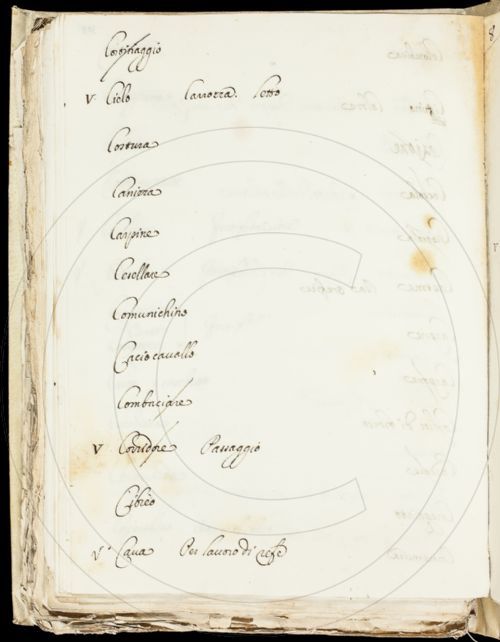 V Cielo Carrozza. Letto
Cortura
Canizza
Carpine
Cesellare
Comunichino
Cacio cavallo
Combaciare
V Corridore Passaggio
Cibreo
V Cava Per lavoro di refe